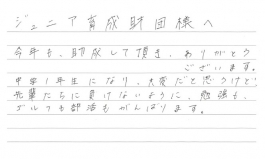 ジュニア育成財団様へ
今年も、助成して頂き、ありがとう
ございます。
中学1年生になり、大変だと思うけど、
先輩たちに負けないように、勉強も、
ゴルフも部活もがんばります。